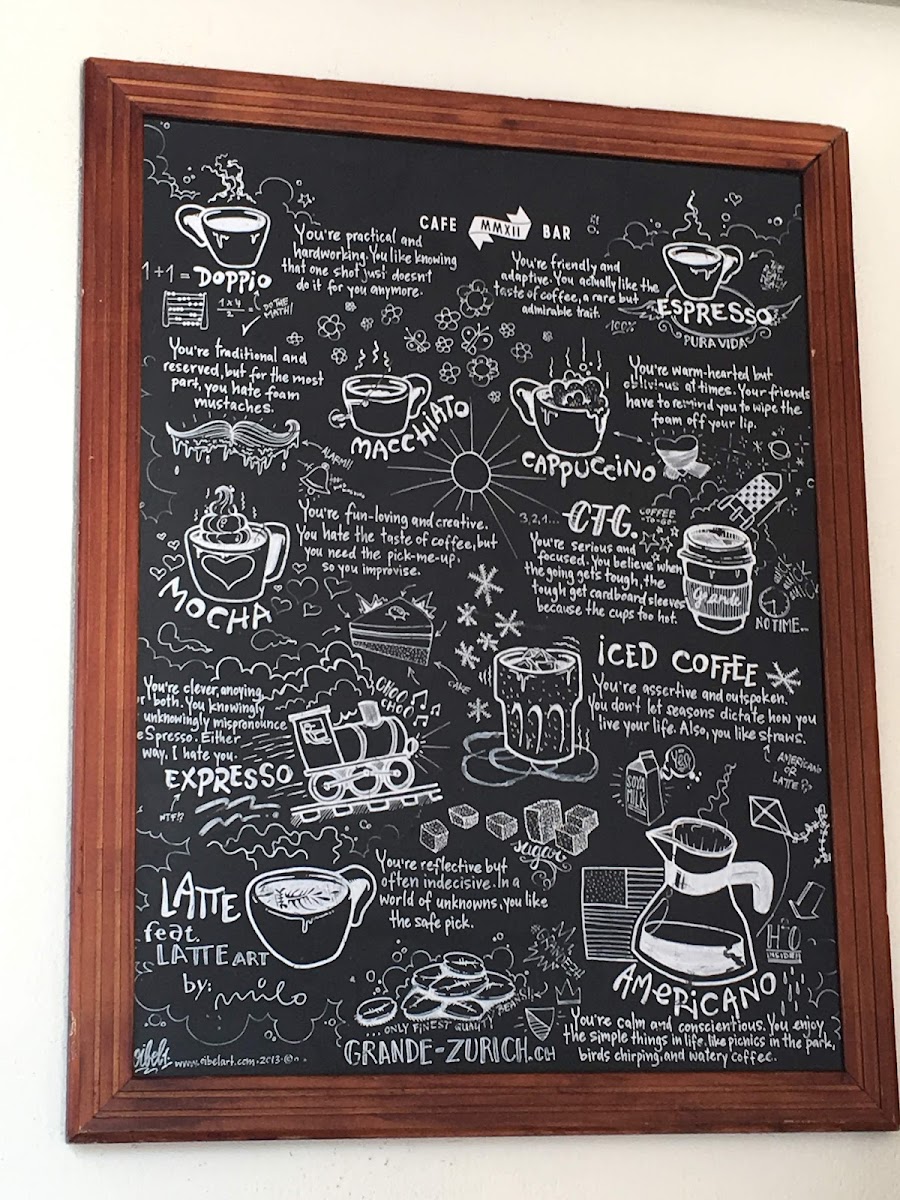 CAFE MMXII BAR
DOPPIO
You're practical and
hardworking. You like knowing
that one shot just doesn't
do it for you anymore.
1+1=
1x4
2
=
DO THE
MATH!
You're friendly and
adaptive. You actually like the
taste of coffee, a rare but
admirable trait.
100%
ESPRESSO
PURA VIDA
You're traditional and
reserved, but for the most
part, you hate foam
mustaches.
MACCHIATO
You're warm-hearted but
oblivious at times. Your friends
have to remind you to wipe the
foam off your lip.
CAPPUCCINO
ALARM!!
MOCHA
You're fun-loving and creative.
You hate the taste of coffee, but
you need the pick-me-up,
so you improvise.
CAKE
3,2,1...
CTG.
COFFEE
-TO-GO-
You're serious and
focused. You believe when
the going gets tough, the
tough get cardboard sleeves
because the cups too hot.
grande
NO TIME...
ICED COFFEE
You're assertive and outspoken.
You don't let seasons dictate how you
live your life. Also, you like straws.
You're clever, anoying,
or both. You knowingly
unknowingly mispronounce
eSpresso. Either
way, I hate you.
EXPRESSO
WTF!?
CHOO
CHOO
AMERICANO
OR
LATTE!?
SOYA
MILK
sugar
LATTE
feat.
LATTE ART
by: milo
You're reflective but
often indecisive. In a
world of unknowns, you like
the safe pick.
H2O
INSIDE!!
AMERICANO
You're calm and conscientious. You enjoy
the simple things in life, like picnics in the park,
birds chirping, and watery coffee.
... ONLY FINEST QUALITY BEANS!
GRANDE-ZURICH.CH
www.oibelart.com.2013